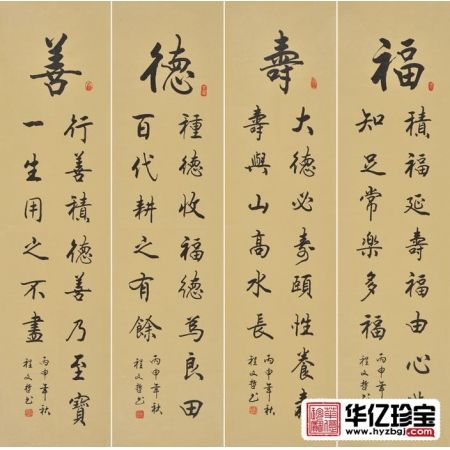 福
積福延壽福由心
知足常樂多福
丙申年秋
程文哲书
壽
大德必壽頤性養
壽與山高水長
丙申年秋
程文哲书
德
種德收福德為良田
百代耕之有餘
丙申年秋
程文哲书
善
行善積德善乃至寶
一生用之不盡
丙申年秋
程文哲书
华亿珍宝
www.hyzbgj.com